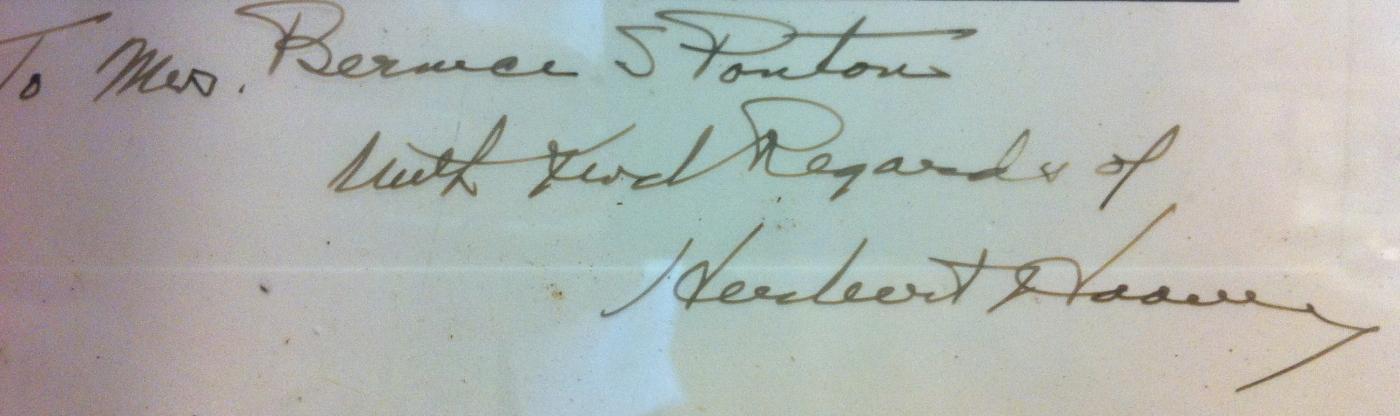 To Mrs. Bernice S Ponton
With Kind Regards of
Herbert Hoover